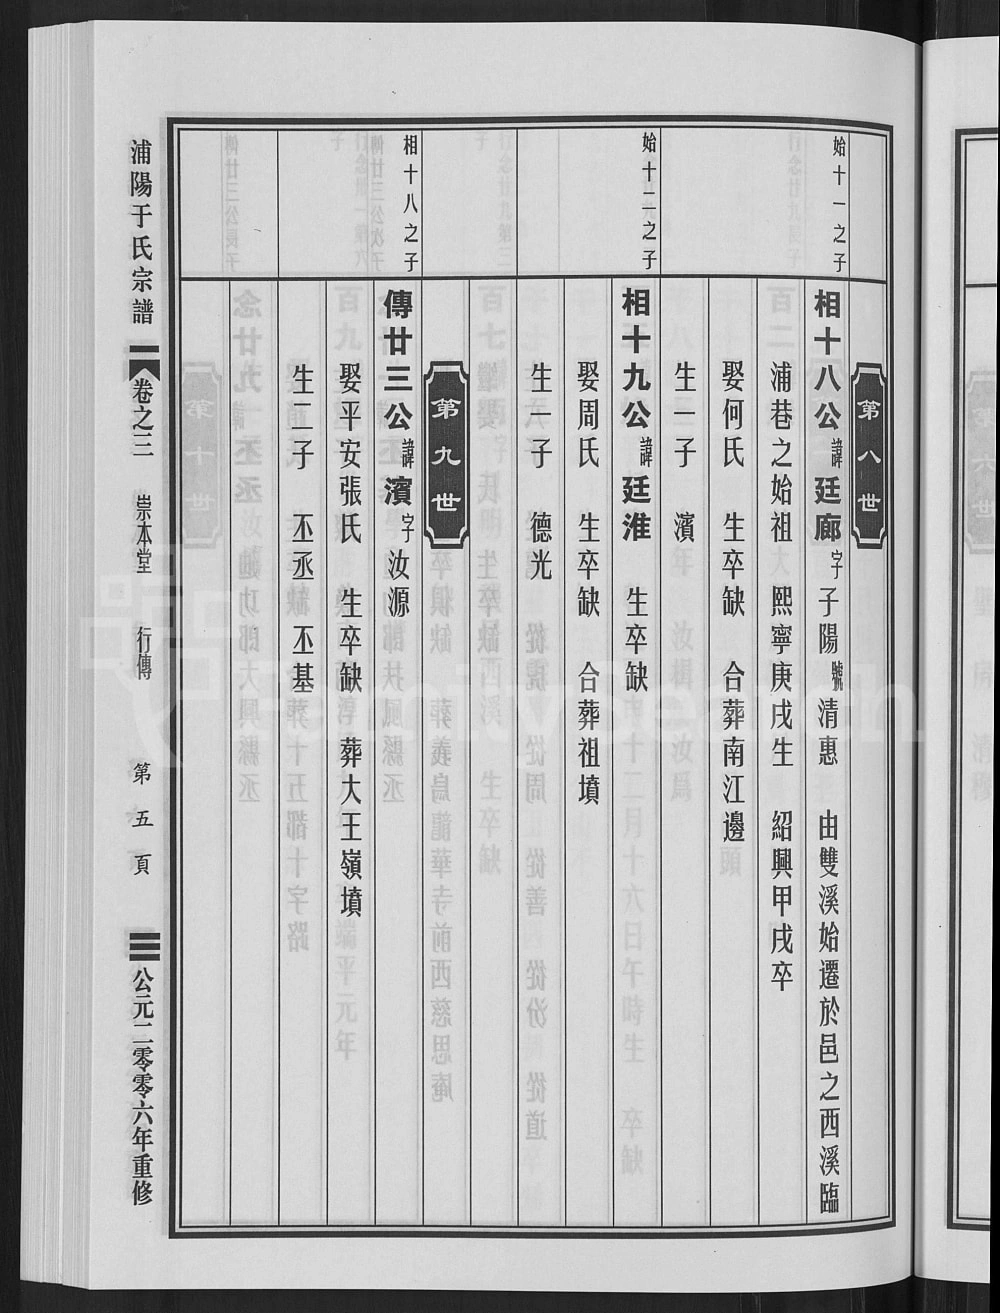 第八世
始十一之子
相十八公諱廷廊字子陽號清惠　由雙溪始遷於邑之西溪臨
浦巷之始祖　熙寧庚戌生　紹興甲戌卒
娶何氏　生卒缺　合葬南江邊
生一子　濱
始十二之子
相十九公諱廷淮　生卒缺
娶周氏　生卒缺　合葬祖墳
生一子　德光
第九世
相十八之子
傳廿三公諱濱字汝源
娶平安張氏　生卒缺　葬大王嶺墳
生二子　丕丞　丕基
浦陽于氏宗譜　卷之三　崇本堂　行傳　第五頁　公元二零零六年重修